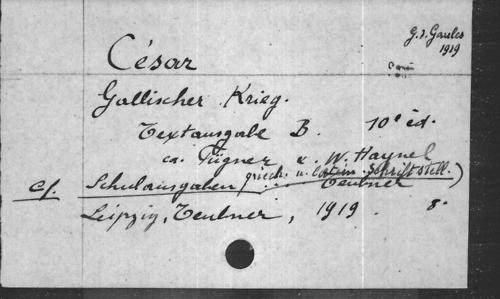 G. d. Gaules
1919
César
Gallischer Krieg.
Textausgabe B. 10e éd.
ca. Fügner u. W. Haynel
griech. u. latein. Schriftstell.)
cf. Schulausgaben Teubner
Leipzig, Teubner, 1919. 8°